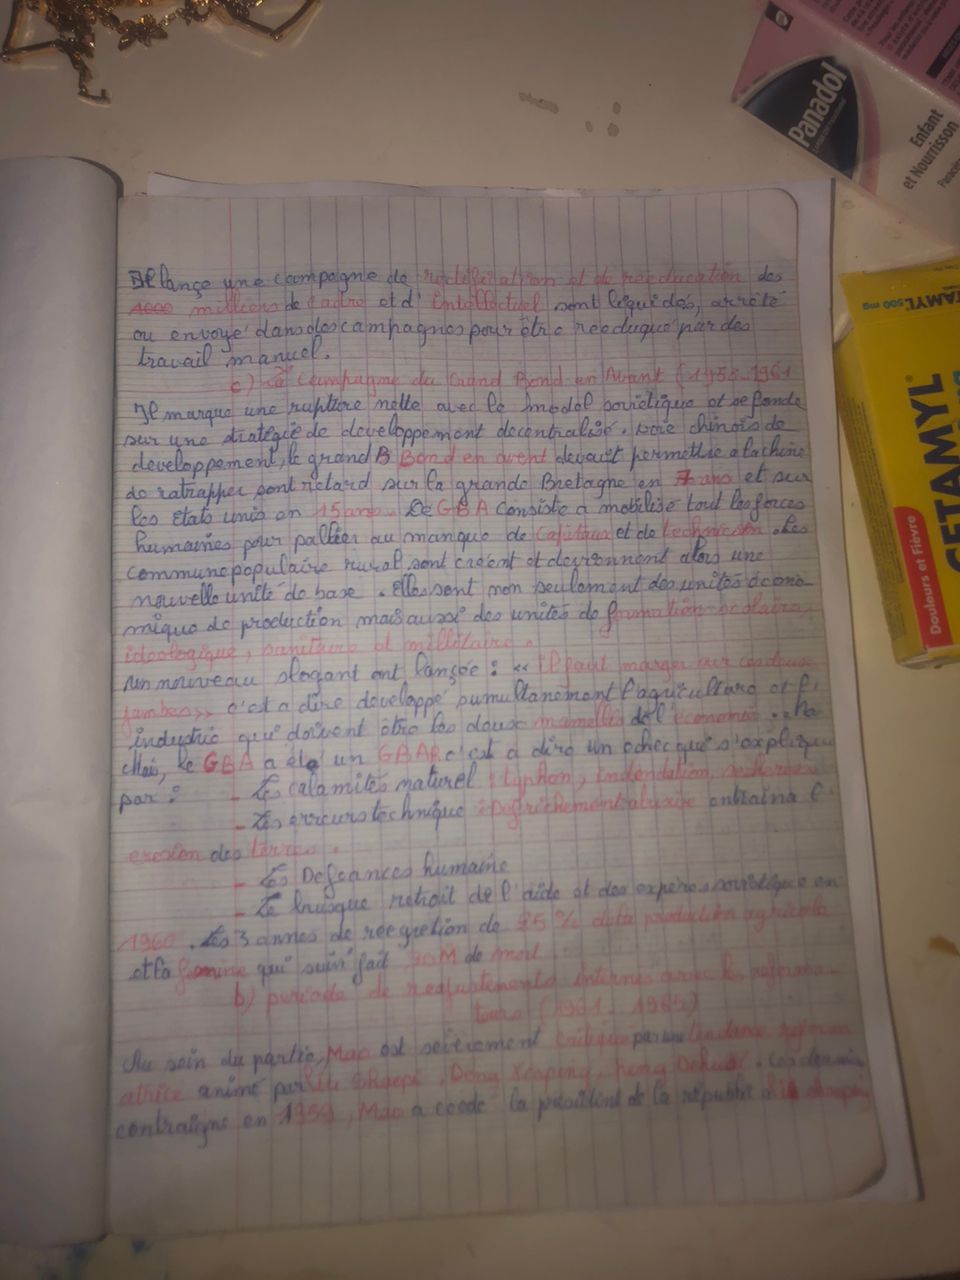 Il lance une campagne de rectification et de reeducation des
1000 millions de cadre et d'Intellectuel sont liquidés, arrêté
ou envoyé dans des campagnes pour être reeduqué par des
travail manuel.
c) La Campagne du Grand Bond en Avant (1958-1961
Il marque une rupture nette avec le model soviétique et se fonde
sur une stratégie de developpement decentralisé. voie chinois de
developpement, le grand B Bond en avent devait permettre a la chine
de ratrapper sont retard sur la grande Bretagne en 7 ans et sur
les Etats unis en 15 ans. Le GBA consiste a mobilisé tout les forces
humaines pour pallier au manque de Capitaux et de technicien. Les
commune populaire rural sont créent et deviennent alors une
nouvelle unité de base. Elles sont non seulement des unités écono-
mique de production mais aussi des unités de formation scolaire,
ideologique, sanitaire et millitaire.
un nouveau slogant ont lançée : « Il faut marger sur ces deux
jambes » c'est a dire developpé sumultanement l'agriculture et l'
industrie qui doivent être les deux mamelles de l'économie.
Mais, le GBA a été un GBAR c'est a dire un echec qui s'explique
par :
- Les calamités naturel : typhon, Inondation,
- Les erreurs technique : Defrichement entraina l'
erosion des terres.
- Les Defeances humaine
- Le brusque retrait de l'aide et des experes soviétique en
1960. Les 3 annes de regretion de 25 % de la production agricole
et la famine qui suivi fait 30M de mort.
b) periode de reajustements Internes avec le reforma-
teurs (1961-1965)
Au sein du partie, Mao est sevèrement critiqué par une tendance reform
atrice animé par Liu Shaopi, Deng Xiaoping, peng Dehuai. Ces dernier
contraigne en 1959, Mao a cedé la president de la republi à
Panadol
Enfant
et Nourrisson
CETAMYL
TAMYL 500 mg
Douleurs et Fièvre